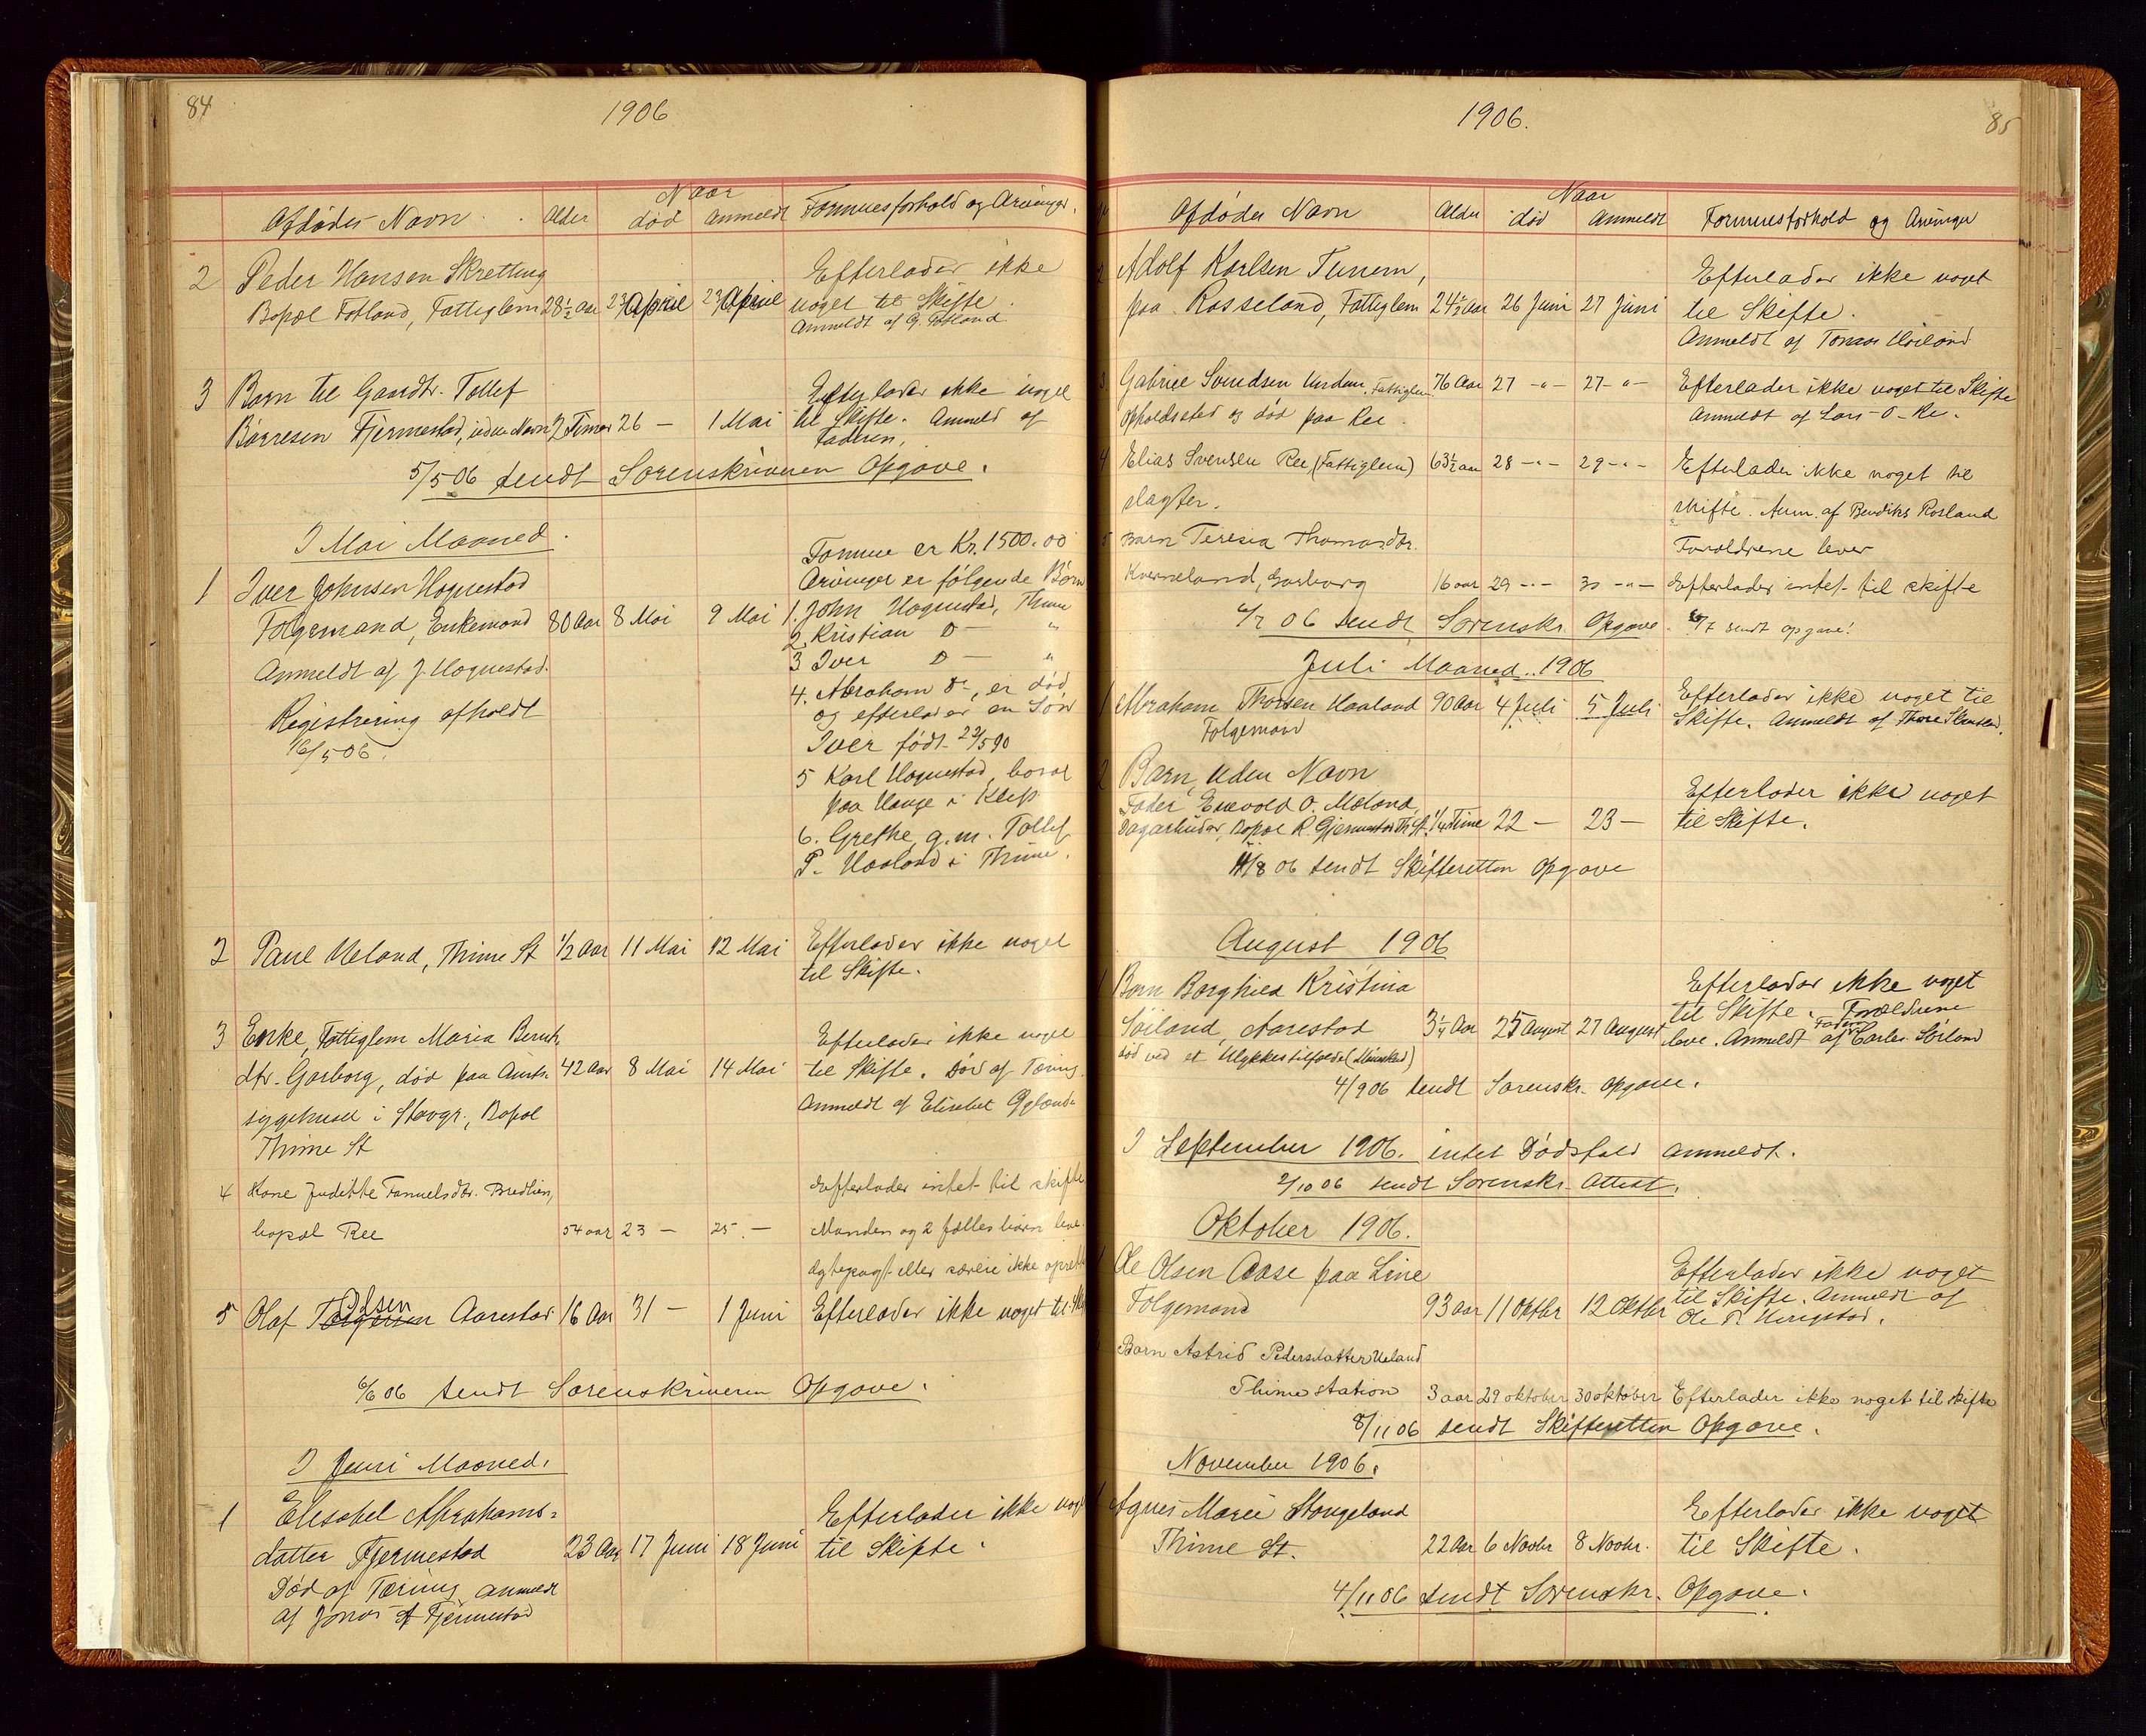 84
1906
Naar
Afdødes Navn Alder død Anmeldt Formuesforhold og Arvinger.
2 Peder Hansen Skretting
Bopæl Fotland, Fattiglem 28½ Aar 23 April 23 April
Efterlader ikke
noget til Skifte.
Anmeldt af G. Fotland
3 Barn til Gaardbr. Tollef
Børresen Fjermestad, uden Navn 2 Timer 26 — 1 Mai
Efterlader ikke noget
til Skifte. Anmeld af
Faderen.
5/5 06 sendt Sorenskriveren Opgave.
I Mai Maaned.
1 Iver Johnsen Hognestad
Folgemand, Enkemand 80 Aar 8 Mai 9 Mai
Anmeldt af J. Hognestad.
Registrering afholdt
16/5 06.
Formue er Kr. 1500.00
Arvinger er følgende Børn
1. John Hognestad, Thime
2. Kristian D— "
3 Iver D— "
4. Abraham D-, er død
og efterlader en Søn
Iver født 22/5 90
5 Karl Hognestad, bosat
paa Hauge i Klep
6. Grethe, g.m. Tollef
P. Haaland i Thime.
2 Paul Ueland, Thime St ½ Aar 11 Mai 12 Mai
Efterlader ikke noget
til Skifte.
3 Enke, Fattiglem Maria Bernh.
dtr. Garborg, død paa Amts- 42 Aar 8 Mai 14 Mai
sygehuset i Stavgr., Bopæl
Thime St
Efterlader ikke noget
til Skifte. Død af Tæring.
Anmeldt af Elisabet
4 Kone Juditte Samuelsdtr. Bredlien,
bopæl Ree 54 aar 23 — 25. —
Efterlader intet til skifte
Manden og 2 fælles børn leve.
Ægtepagt eller særeie ikke oprett
5 Olaf Olsen Aarestad 16 Aar 31 — 1 Juni Efterlader ikke noget til
6/6 06 sendt Sorenskriveren Opgave.
I Juni Maaned.
1 Elisabet Abrahams-
datter Fjermestad 23 Aar 17 Juni 18 Juni
Død af Tæring anmeldt
af Jonas A Fjermestad
Efterlader ikke noget
til Skifte.
1906.
85
Naar
Afdødes Navn Alder død Anmeldt Formuesforhold og Arvinger
2 Adolf Karlsen Tunem,
paa Rosseland, Fattiglem 24½ Aar 26 Juni 27 Juni
Efterlader ikke noget
til Skifte.
Anmeldt af Tomas Høiland
3 Gabriel Svendsen Undem, Fattiglem 76 Aar 27 -"- 27 -"-
opholdssted og død paa Ree.
Efterlader ikke noget til Skifte
Anmeldt af Lars O. Re.
4 Elias Svensen Ree (Fattiglem) 63½ aar 28 -"- 29 -"-
slagter.
Efterlader ikke noget til
skifte. Anm. af Bendiks Rosland
5 Barn Teresia Thomasdtr.
Kverneland, Garborg 16 aar 29 -"- 30 -"-
Foroldrene lever
Efterlader intet til skifte
6/7 06 sendt Sorenskr. Opgave. 6/7 sendt opgave!
Juli Maaned. 1906
1 Abraham Thorsen Haaland 90 Aar 4 Juli 5 Juli
Folgemand
Efterlader ikke noget til
Skifte. Anmeldt af Thore
2 Barn, uden Navn
Fader Enevald O. Møland,
Dagarbeider, Bopæl R. Gjermestad Th. St. ¼ Time 22 — 23 —
Efterlader ikke noget
til Skifte.
4/8 06 sendt Skifteretten Opgave
August 1906
1 Barn Borghild Kristina
Søiland, Aarestad 3¼ Aar 25 August 27 August
død ved et Ulykkestilfælde
Efterlader ikke noget
til Skifte. Forældrene
leve. Anmeldt af Fader Carles Sørland
4/9 06 sendt Sorenskr. Opgave.
I September 1906. intet Dødsfald anmeldt.
2/10 06 sendt Sorenskr. Attest.
Oktober 1906.
1 Ole Olsen Aase paa Line
Folgemand 93 aar 11 Oktbr 12 Oktbr
Efterlader ikke noget
til Skifte. Anmeldt af
Ole P.
Barn Astrid Pedersdatter Ueland
Thime station 3 aar 29 oktober 30 oktober Efterlader ikke noget til skifte
8/11 06 sendt Skifteretten Opgave.
November 1906.
1 Agnes Marie Stangeland
Thime St. 22 Aar 6 Novbr 8 Novbr.
Efterlader ikke noget
til Skifte.
4/11 06 sendt Sorenskr. Opgave.